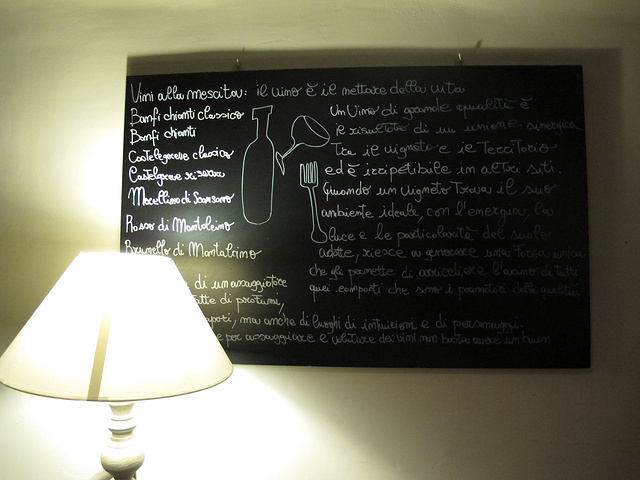 Vini alla mescita: il vino è il nettare della vita
Banfi chianti classico
Banfi chianti
Castelgreve classico
Castelgreve riserva
Morellino di Scansano
Rosso di Montalcino
Brunello di Montalcino
Un Vino di grande qualità è
il risultato di un unione sinergica
Tra il vigneto e il Territorio
ed è irripetibile in altri siti.
Quando un vigneto Trova il suo
ambiente ideale, con l'energia, la
luce e le particolarità del suolo
adatte, riesce a generare una Forza
che gli permette di arricchire l'acino di tutti
quei composti che sono i promotori della qualità
di un assaggiatore
fatte di profumi,
ma anche di luoghi di intuizioni e di personaggi.
per assaggiare e valutare dei vini non basta avere un buon